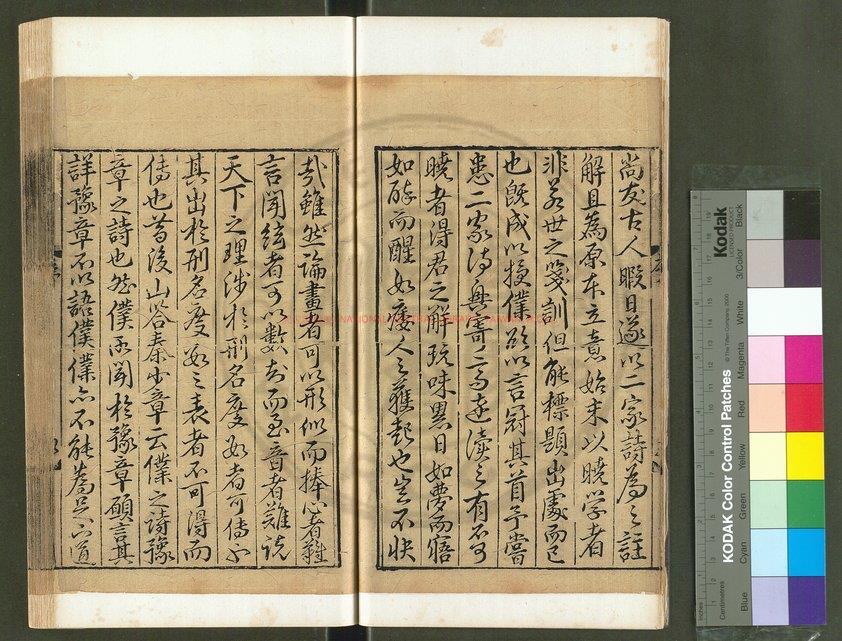 尚友古人暇日遂以二家詩為之註
解且為原本立意始末以曉学者
非若世之箋訓但能標題出處而已
也既成以授僕欲以言冠其首予嘗
患二家詩興寄高遠讀之有不可
曉者得君之解玩味累日如夢而寤
如醉而醒如痿人之獲起也豈不快
哉雖然論畫者可以形似而捧心者難
言聞絃者可以數知而至音者難說
天下之理涉於刑名度數者可傳也
其出於刑名度數之表者不可得而
傳也昔後山答秦少章云僕之詩豫
章之詩也然僕所聞於豫章願言其
詳豫章不以語僕僕亦不能為足下道
KODAK Color Control Patches
Kodak
LICENSED PRODUCT
© The Tiffen Company, 2000
Centimetres
Inches
Blue
Cyan
Green
Yellow
Red
Magenta
White
3/Color
Black